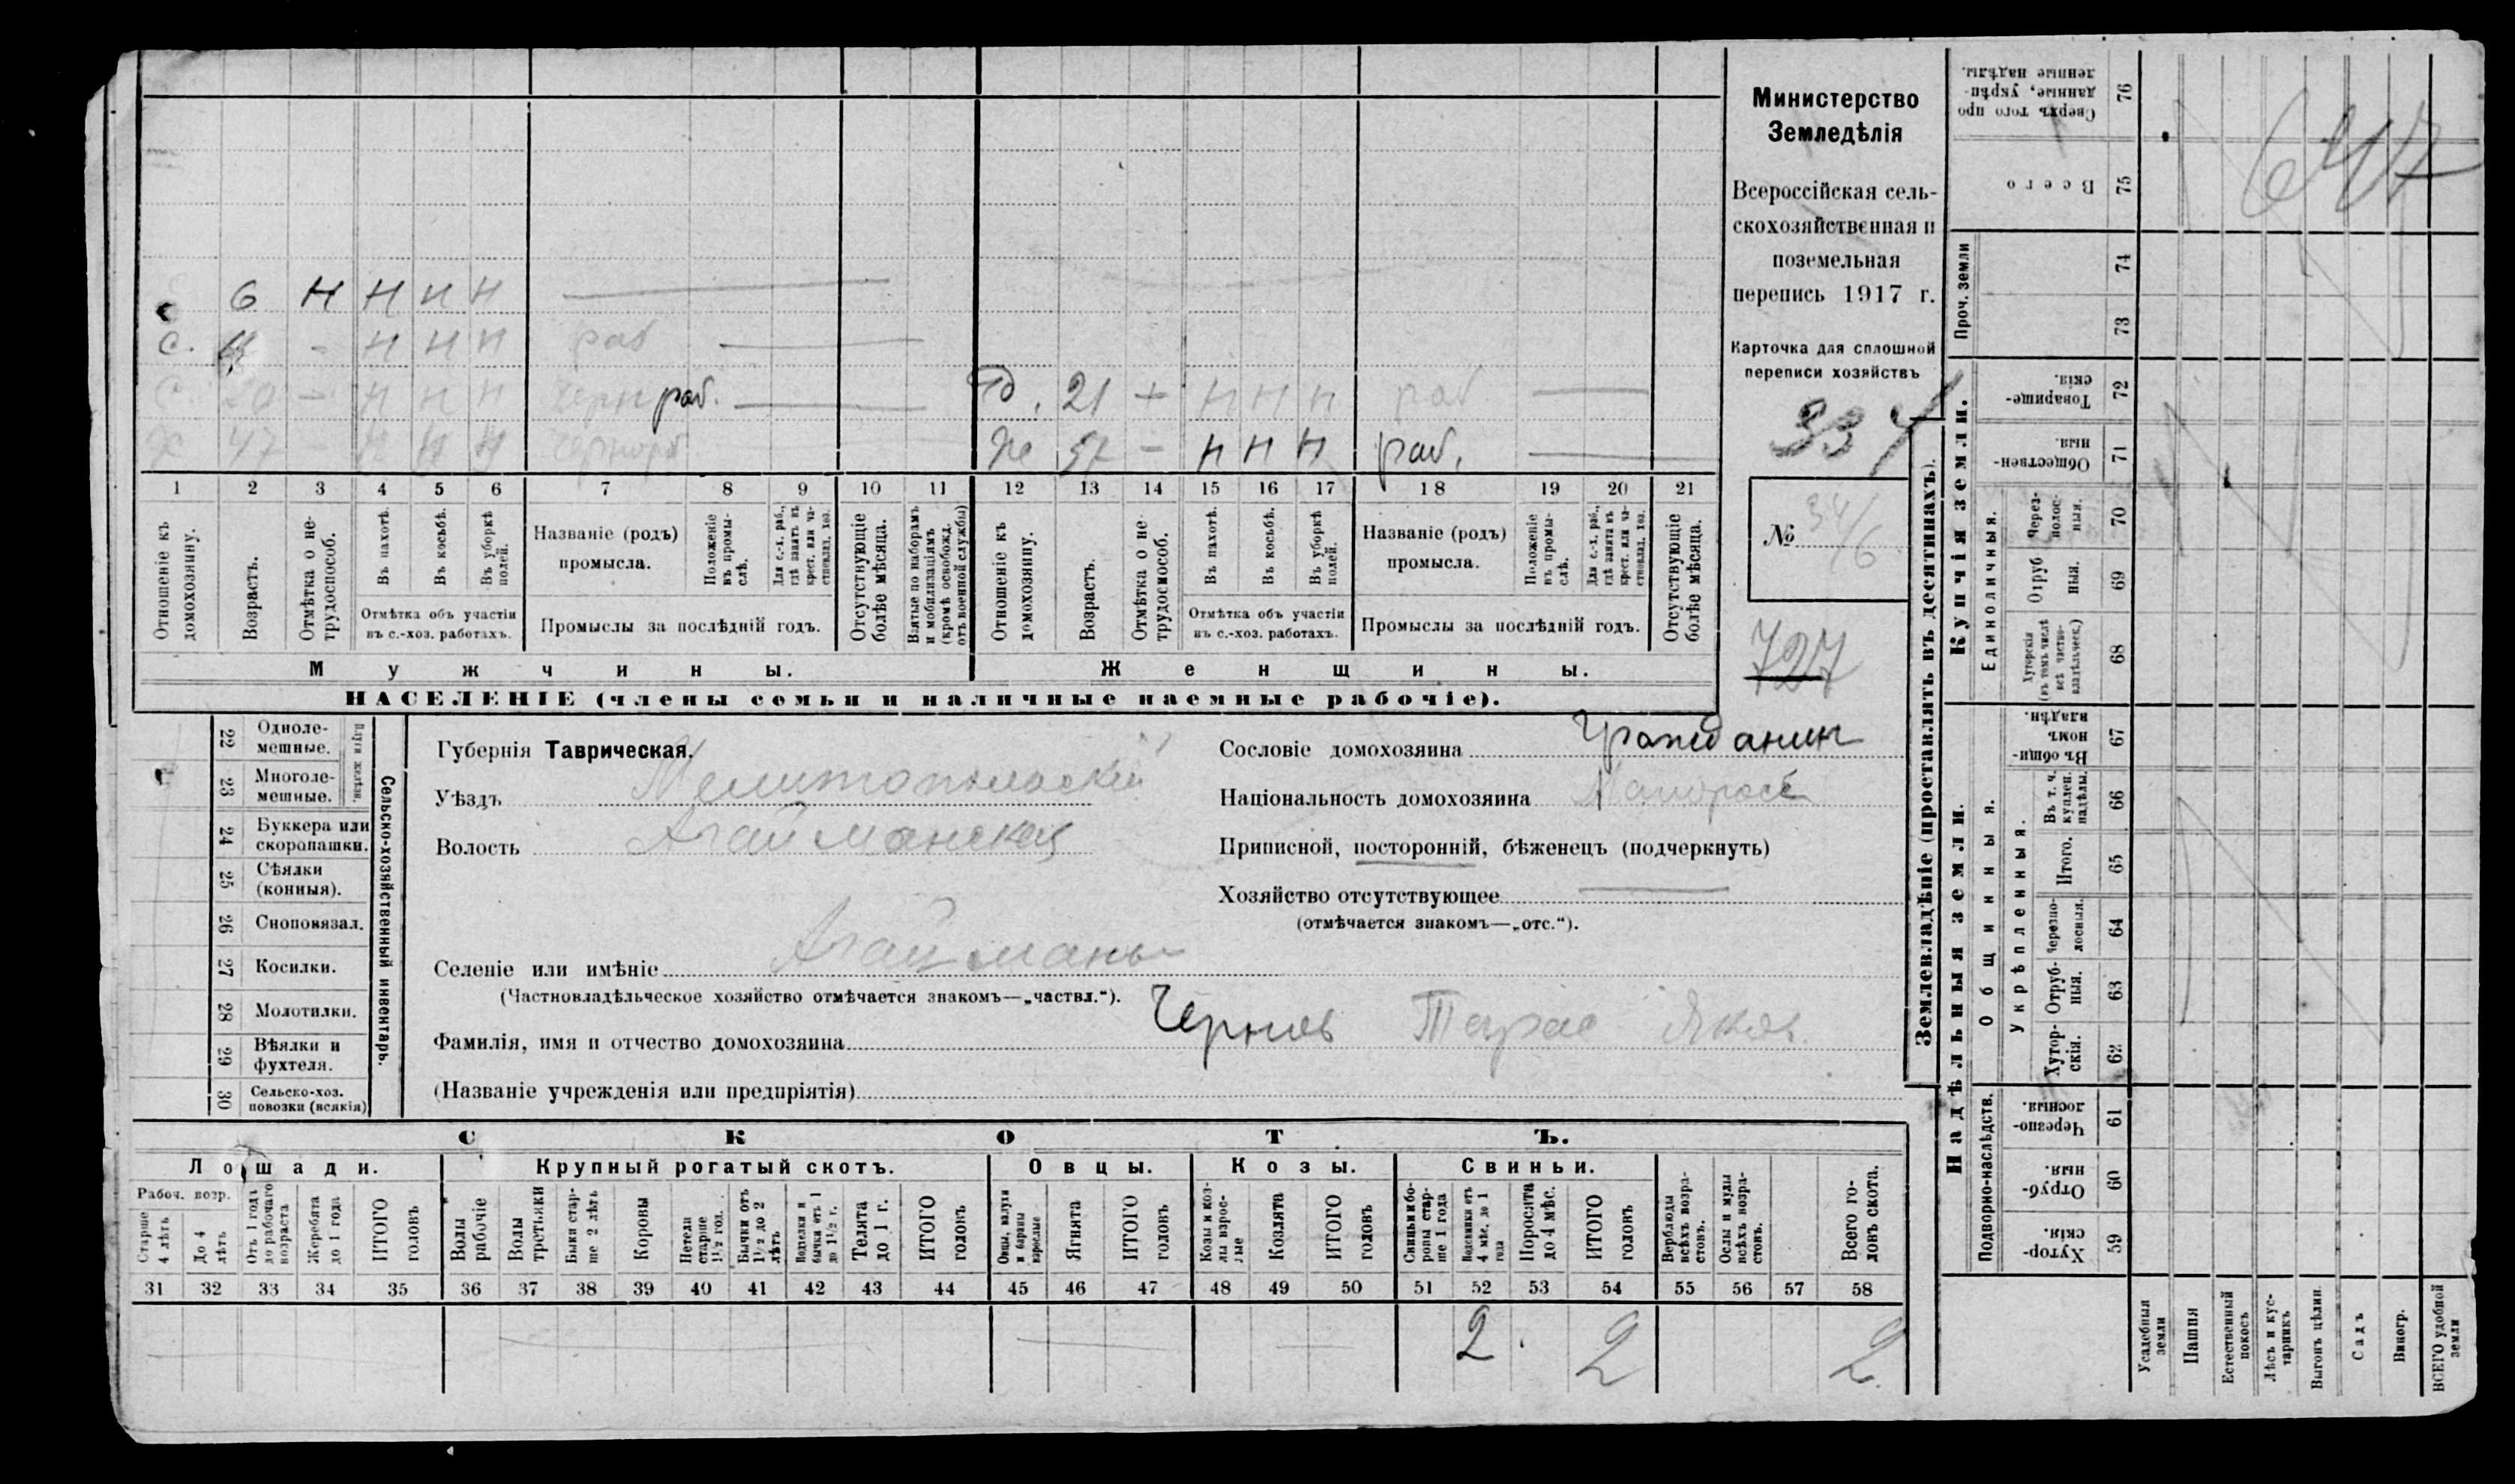 Министерство
Земледѣлія
Всероссійская сель-
скохозяйственная и
поземельная
перепись 1917 г.
Карточка для сплошной
переписи хозяйствъ
334
№ 34/6
727
647
6 н н н н
с. – н н н раб
с. 20 – н н н раб.
Х 47 н н н
21 + н н н раб
Же – н н н раб.
1 2 3 4 5 6 7 8 9 10 11 12 13 14 15 16 17 18 19 20 21
Отношеніе къ домохозяину.
Возрастъ.
Отмѣтка о не-трудоспособ.
Въ пахотѣ.
Въ косьбѣ.
Въ уборкѣ полей.
Отмѣтка объ участіи въ с.-хоз. работахъ.
Названіе (родъ) промысла.
Положеніе въ промы-слѣ.
Для с.-х. раб., гдѣ занятъ въ крест. или ча-стновлад. хоз.
Промыслы за послѣдній годъ.
Отсутствующіе болѣе мѣсяца.
Взятые по наборамъ и мобилизаціямъ (кромѣ освобожд. отъ военной службы)
Отношеніе къ домохозяину.
Возрастъ.
Отмѣтка о не-трудоспособ.
Въ пахотѣ.
Въ косьбѣ.
Въ уборкѣ полей.
Отмѣтка объ участіи въ с.-хоз. работахъ.
Названіе (родъ) промысла.
Положеніе въ промы-слѣ.
Для с.-х. раб., гдѣ занята въ крест. или ча-стновлад. хоз.
Промыслы за послѣдній годъ.
Отсутствующіе болѣе мѣсяца.
Мужчины.
Женщины.
НАСЕЛЕНІЕ (члены семьи и наличные наемные рабочіе).
22 Одноле-мешные.
23 Многоле-мешные.
Плуги желѣзн.
24 Буккера или скоропашки.
25 Сѣялки (конныя).
26 Сноповязал.
27 Косилки.
28 Молотилки.
29 Вѣялки и фухтеля.
30 Сельско-хоз. повозки (всякія)
Сельско-хозяйственный инвентарь.
Губернія Таврическая.
Уѣздъ Мелитопольскій
Волость Агайманская
Селеніе или имѣніе Агайманы
(Частновладѣльческое хозяйство отмѣчается знакомъ—„частвл.“).
Фамилія, имя и отчество домохозяина Чернов Тарас Яков
(Названіе учрежденія или предпріятія)
Сословіе домохозяина Гражданин
Національность домохозяина Малоросс
Приписной, посторонній, бѣженецъ (подчеркнуть)
Хозяйство отсутствующее
(отмѣчается знакомъ—„отс.“).
СКОТЪ.
Лошади. Крупный рогатый скотъ. Овцы. Козы. Свиньи.
Рабоч. возр.
Старше 4 лѣтъ
До 4 лѣтъ
Отъ 1 года до рабочаго возраста
Жеребята до 1 года
ИТОГО головъ
Волы рабочіе
Волы третьяки
Быки стар-ше 2 лѣтъ
Коровы
Нетели старше 1½ год.
Бычки отъ 1½ до 2 лѣтъ
Нетелки и бычки отъ 1 до 1½ г.
Телята до 1 г.
ИТОГО головъ
Овцы, валухи и бараны взрослые
Ягнята
ИТОГО головъ
Козы и коз-лы взрос-лые
Козлята
ИТОГО головъ
Свиньи и бо-ровы стар-ше 1 года
Подсвинки отъ 4 мѣс. до 1 года
Поросята до 4 мѣс.
ИТОГО головъ
Верблюды всѣхъ возра-стовъ.
Ослы и мулы всѣхъ возра-стовъ.
Всего го-ловъ скота.
31 32 33 34 35 36 37 38 39 40 41 42 43 44 45 46 47 48 49 50 51 52 53 54 55 56 57 58
2 2 2
Землевладѣніе (проставлять въ десятинахъ).
Надѣльныя земли.
Купчія земли.
Проч. земли
Подворно-наслѣдств.
Общинныя.
Укрѣпленныя.
Единоличныя.
Хутор-скія. 59
Отруб-ныя. 60
Черезпо-лосныя. 61
Хутор-скія. 62
Отруб-ныя. 63
Черезпо-лосныя. 64
Итого. 65
Въ т. ч. куплен. надѣлы. 66
Въ общи-номъ владѣн. 67
Хуторскія (въ томъ числѣ всѣ частно-владѣльческ.) 68
Отруб ныя. 69
Через-полос-ныя. 70
Обществен-ныя. 71
Товарище-скія. 72
73
74
Всего 75
Сверхъ того про данные, укрѣп-ленные надѣлы. 76
Усадебныя земли
Пашня
Естественный покосъ
Лѣсъ и кус-тарникъ
Выгонъ цѣлин.
Садъ
Виногр.
ВСЕГО удобной земли